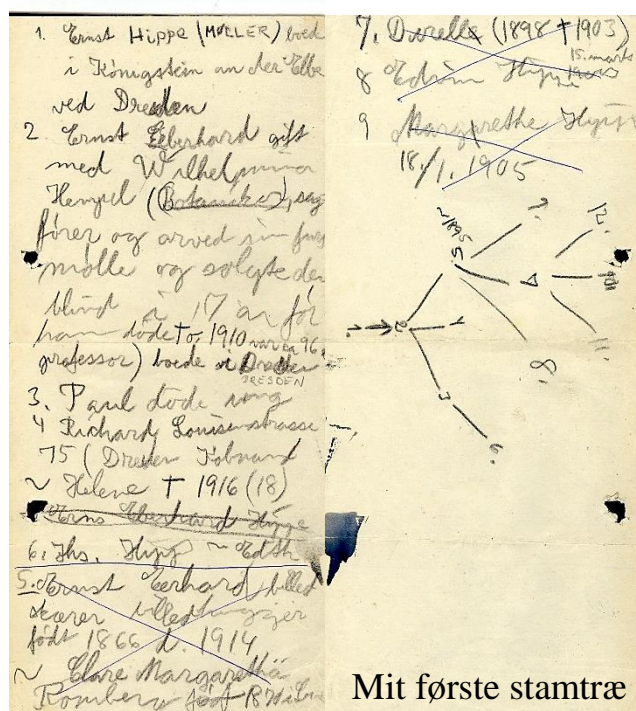 1. Ernst Hippe (MØLLER) boed
i Königstein an der Elbe
ved Dresden
2 Ernst Eberhard gift
med Wilhelmina
Hempel (Botaniker), sag
fører og arved sin fars
mølle og solgte den
blind i 17 år før
han døde † 1910 var ca 96.
professor) boede i Dresden
DRESDEN
3. Paul døde ung
4 Richard, Louisenstrasse
75 (Dresden
~ Helene † 1916 (18)
Erns Eberhard Hippe
6. Jhs. Hipp ~ Edth
5. Ernst Eerhard, billed
skærer billedhugger
født 1866 d. 1914
~ Clare Margaretha
Romberg født
7. (1898 † 1903)
8 Edwin Hippe 15. marts
9 Margarethe Hippe
18./1. 1905
~1895
5.
7.
12.
4
10
11.
1.
2.
4
8.
3
6.
Mit første stamtræ